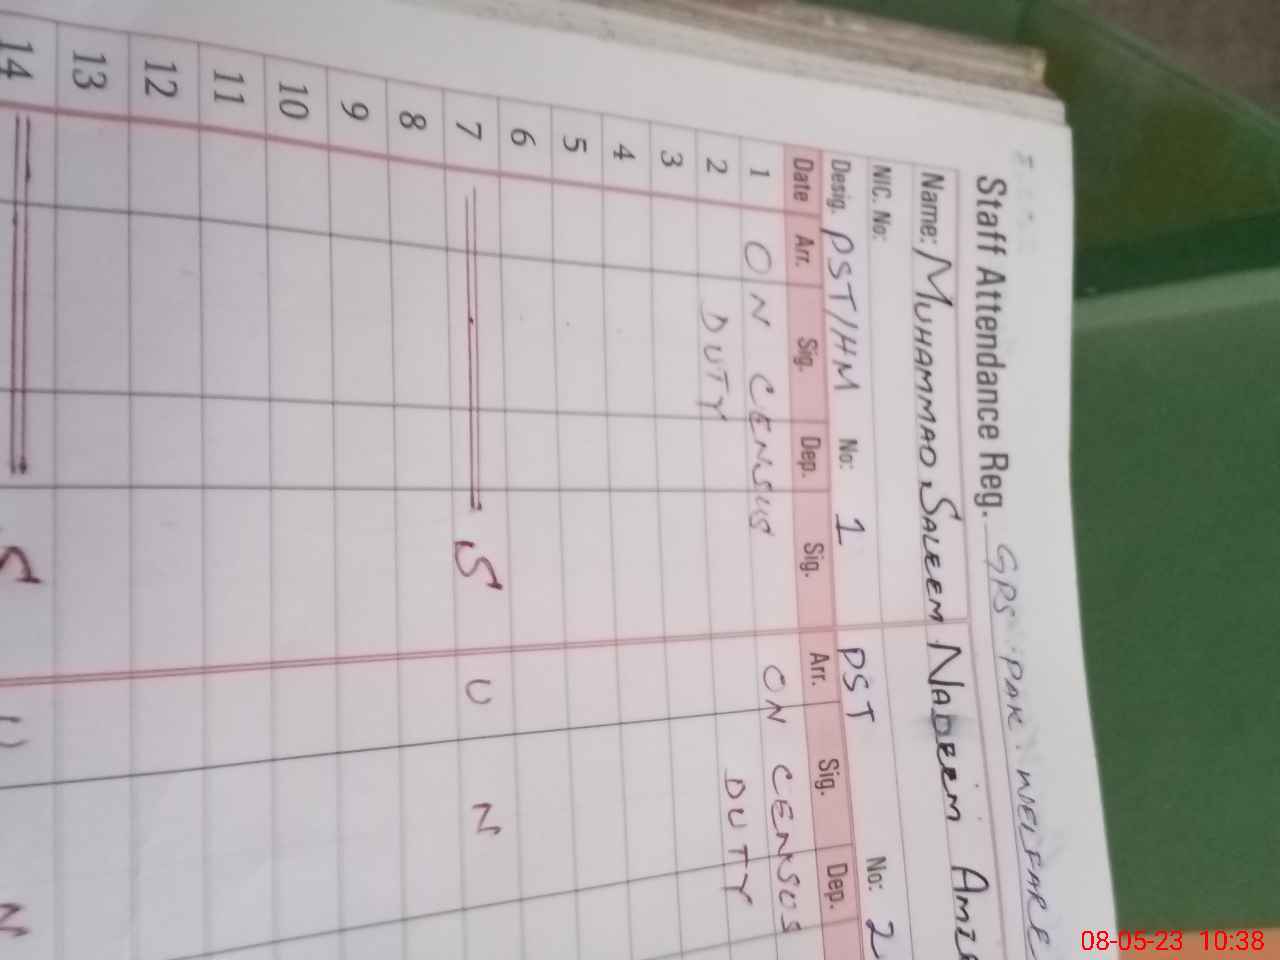 Staff Attendance Reg. GPS PAK WELFARE
Name: MUHAMMAD SALEEM NADEEM
NIC. No:
Desig. PST/HM No: 1 PST No: 2
Date Arr. Sig. Dep. Sig. Arr. Sig. Dep.
1 ON CENSUS ON CENSUS
2 DUTY DUTY
3
4
5
6
7 S U N
8
9
10
11
12
13
14 S U N
08-05-23 10:38